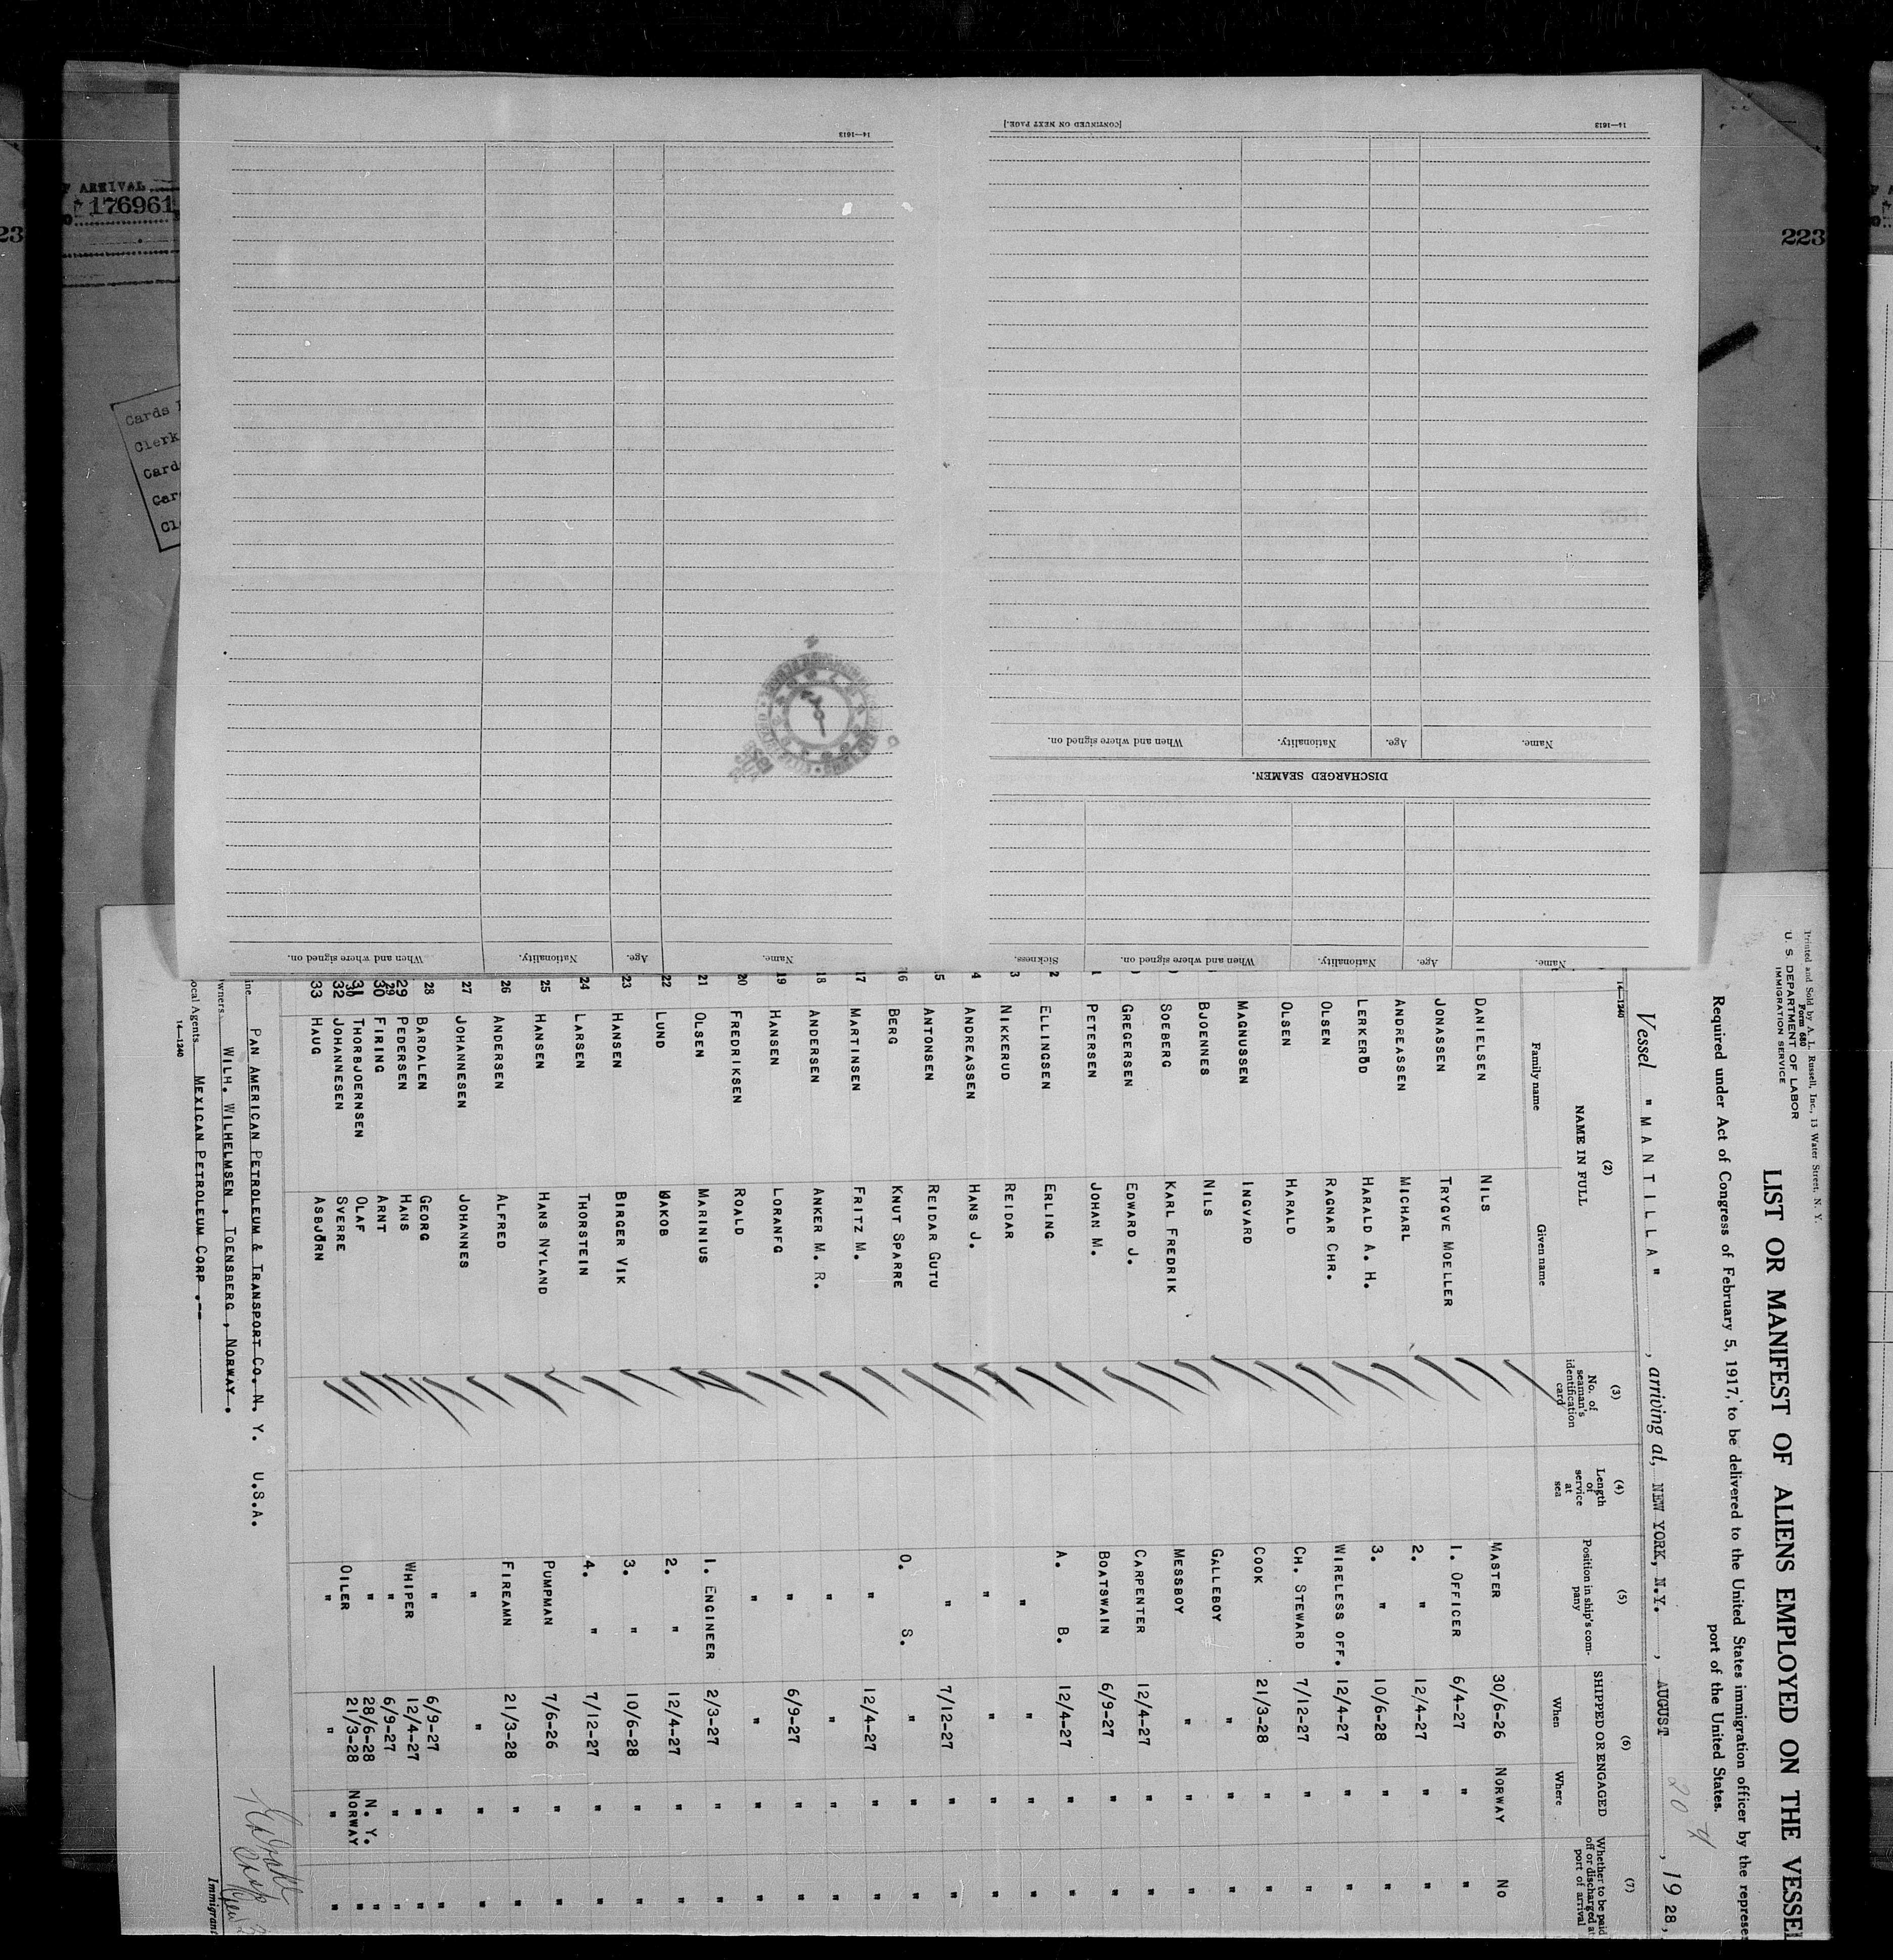 Printed and Sold by A. L. Russell, Inc., 13 Water Street, N. Y.
Form 680
U. S. DEPARTMENT OF LABOR
IMMIGRATION SERVICE
LIST OR MANIFEST OF ALIENS EMPLOYED ON THE VESSEL
Required under Act of Congress of February 5, 1917, to be delivered to the United States immigration officer by the represen
port of the United States.
Vessel "MANTILLA", arriving at, NEW YORK, N.Y., AUGUST 20, 1928,
14—1240
(2) (3) (4) (5) (6) (7)
NAME IN FULL No. of seaman's identification card Length of service at sea Position in ship's company SHIPPED OR ENGAGED Whether to be paid off or discharged at port of arrival
Family name Given name When Where
DANIELSEN NILS MASTER 30/6-26 NORWAY NO
JONASSEN TRYGVE MOELLER 1. OFFICER 6/4-27 " "
ANDREASSEN MICHARL 2. " 12/4-27 " "
LERKERØD HARALD A. H. 3. " 10/6-28 " "
OLSEN RAGNAR CHR. WIRELESS OFF. 12/4-27 " "
OLSEN HARALD CH. STEWARD 7/12-27 " "
MAGNUSSEN INGVARD COOK 21/3-28 " "
BJOENNES NILS GALLEBOY " " "
SOEBERG KARL FREDRIK MESSBOY " " "
GREGERSEN EDWARD J. CARPENTER 12/4-27 " "
1 PETERSEN JOHAN M. BOATSWAIN 6/9-27 " "
2 ELLINGSEN ERLING A. B. 12/4-27 " "
3 NIKKERUD REIDAR " " " "
4 ANDREASSEN HANS J. " " " "
5 ANTONSEN REIDAR GUTU " 7/12-27 " "
16 BERG KNUT SPARRE O. S. " " "
17 MARTINSEN FRITZ M. " 12/4-27 " "
18 ANDERSEN ANKER M. R. " " " "
19 HANSEN LORANFG " 6/9-27 " "
20 FREDRIKSEN ROALD " " " "
21 OLSEN MARINIUS 1. ENGINEER 2/3-27 " "
22 LUND JAKOB 2. " 12/4-27 " "
23 HANSEN BIRGER VIK 3. " 10/6-28 " "
24 LARSEN THORSTEIN 4. " 7/12-27 " "
25 HANSEN HANS NYLAND PUMPMAN 7/6-26 " "
26 ANDERSEN ALFRED FIREAMN 21/3-28 " "
27 JOHANNESEN JOHANNES " " " "
28 BARDALEN GEORG " 6/9-27 " "
29 PEDERSEN HANS WHIPER 12/4-27 " "
30 FIRING ARNT " 6/9-27 " "
31 THORBJOERNSEN OLAF " 28/6-28 N. Y. "
32 JOHANNESEN SVERRE OILER 21/3-28 NORWAY "
33 HAUG ASBJØRN " " " "
ine PAN AMERICAN PETROLEUM & TRANSPORT CO. N. Y. U.S.A.
wners WILH. WILHELMSEN, TOENSBERG, NORWAY.
ocal Agents MEXICAN PETROLEUM CORP.--
14—1240
Immigrant
Name. Age. Nationality. When and where signed on. Sickness.
DISCHARGED SEAMEN.
Name. Age. Nationality. When and where signed on.
[CONTINUED ON NEXT PAGE.]
14—1613
Name. Age. Nationality. When and where signed on.
14—1613
F ARRIVAL
176961
223
23
Cards
Clerk
Card
Car
Cl